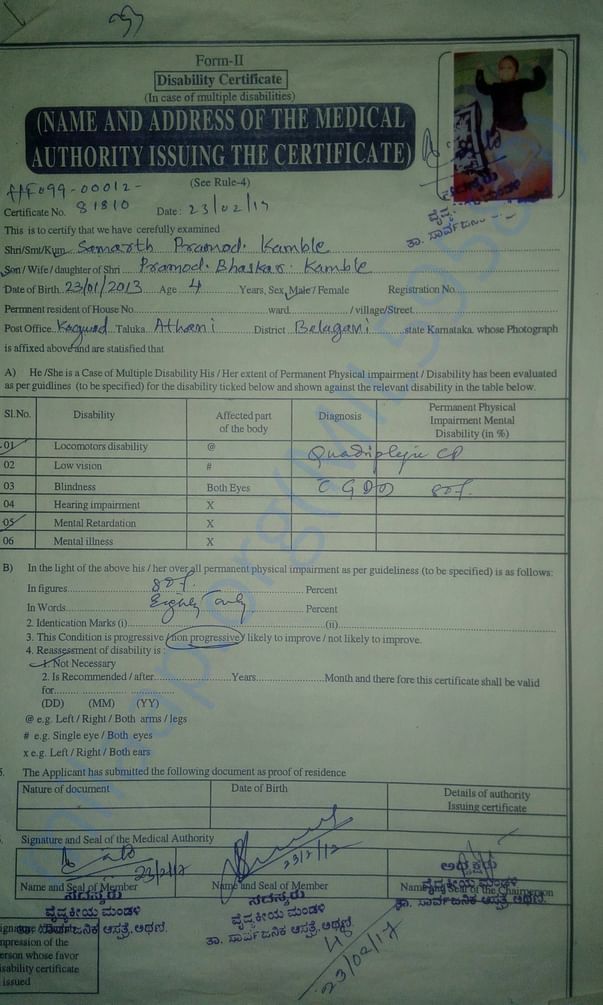 Form-II
Disability Certificate
(In case of multiple disabilities)
(NAME AND ADDRESS OF THE MEDICAL
AUTHORITY ISSUING THE CERTIFICATE)
(See Rule-4)
Certificate No. 81810 Date: 23/02/17
This is to certify that we have cerefully examined
Shri/Smt/Kum Samarth Pramod. Kamble
Son / Wife / daughter of Shri Pramod. Bhaskar. Kamble
Date of Birth 23/01/2013 Age 4 Years, Sex Male / Female Registration No.
Permnent resident of House No ward / village/Street
Post Office Kagwad Taluka Athani District Belagavi state Karnataka. whose Photograph
is affixed above and are statisfied that
A) He /She is a Case of Multiple Disability His / Her extent of Permanent Physical impairment / Disability has been evaluated
as per guidlines (to be specified) for the disability ticked below and shown against the relevant disability in the table below.
Sl.No. Disability Affected part of the body Diagnosis Permanent Physical Impairment Mental Disability (in %)
01 Locomotors disability @ Quadriplegic CP
02 Low vision #
03 Blindness Both Eyes GDD 80%
04 Hearing impairment X
05 Mental Retardation X
06 Mental illness X
B) In the light of the above his / her over all permanent physical impairment as per guideliness (to be specified) is as follows:
In figures 80% Percent
In Words Eighty only Percent
2. Identication Marks (i) (ii)
3. This Condition is progressive / non progressive / likely to improve / not likely to improve.
4. Reassessment of disability is :
1. Not Necessary
2. Is Recommended / after Years Month and there fore this certificate shall be valid
for
(DD) (MM) (YY)
@ e.g. Left / Right / Both arms / legs
# e.g. Single eye / Both eyes
x e.g. Left / Right / Both ears
The Applicant has submitted the following document as proof of residence
Nature of document Date of Birth Details of authority Issuing certificate
Signature and Seal of the Medical Authority
23/2/17 23/2/17
Name and Seal of Member Name and Seal of Member Name and Seal of the Chairperson
ಸದಸ್ಯರು ಸದಸ್ಯರು ಅಧ್ಯಕ್ಷರು
ವೈದ್ಯಕೀಯ ಮಂಡಳಿ ವೈದ್ಯಕೀಯ ಮಂಡಳಿ ವೈದ್ಯಕೀಯ ಮಂಡಳಿ
ತಾ. ಸಾರ್ವಜನಿಕ ಆಸ್ಪತ್ರೆ, ಅಥಣಿ. ತಾ. ಸಾರ್ವಜನಿಕ ಆಸ್ಪತ್ರೆ, ಅಥಣಿ. ತಾ. ಸಾರ್ವಜನಿಕ ಆಸ್ಪತ್ರೆ, ಅಥಣಿ.
23/02/17
mpression of the
erson whose favor
isability certificate
issued